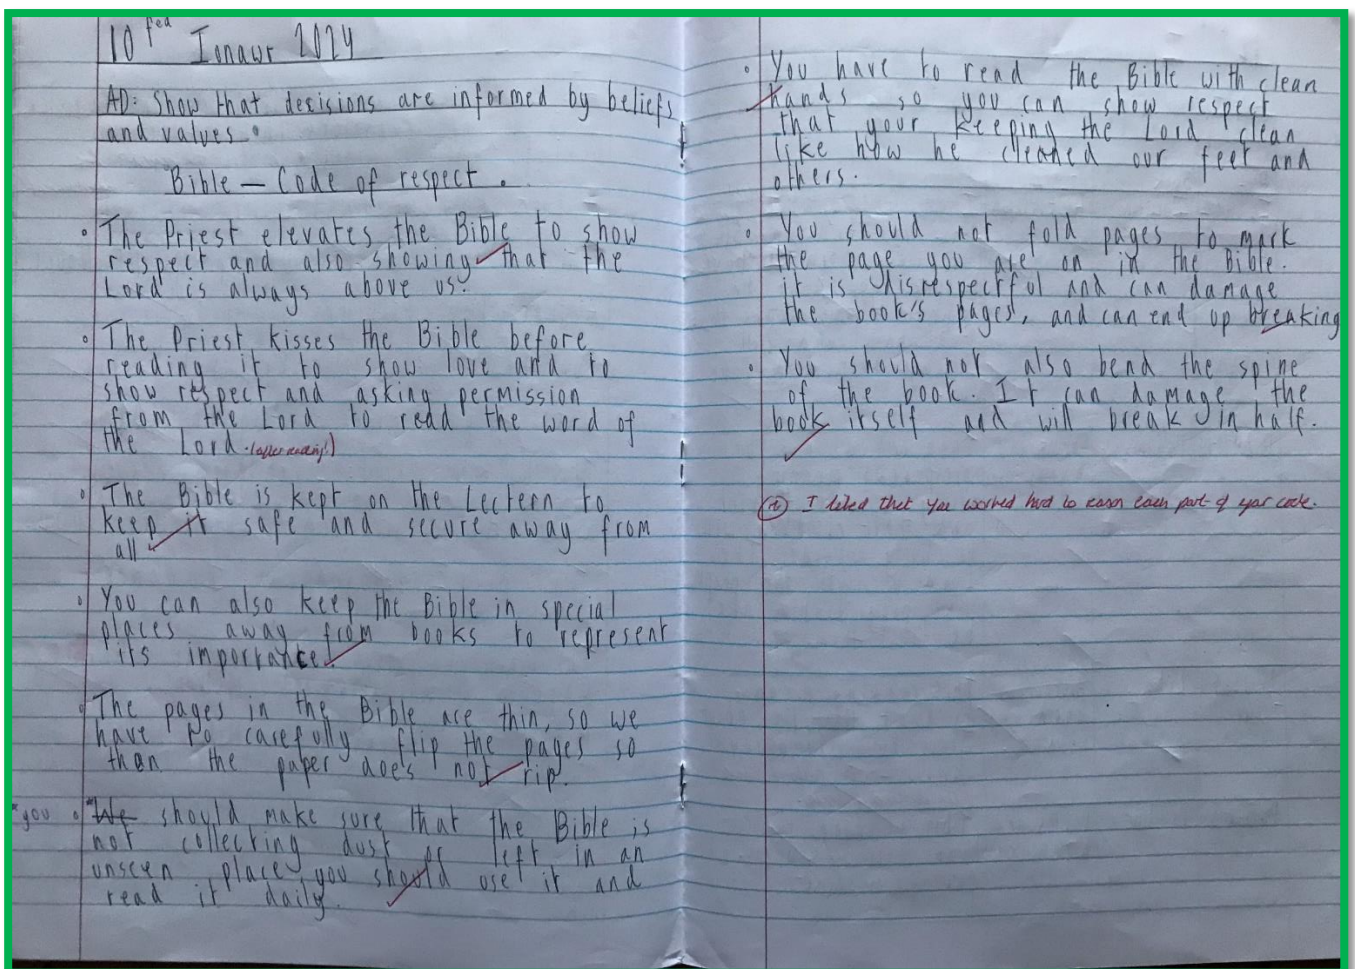 10fed Ionawr 2024
AD: Show that decisions are informed by beliefs
and values.
Bible – Code of respect.
• The Priest elevates the Bible to show
respect and also showing that the
Lord is always above us.
• The Priest kisses the Bible before
reading it to show love and to
show respect and asking permission
from the Lord to read the word of
the Lord. (after reading!)
• The Bible is kept on the Lectern to
keep it safe and secure away from
all
• You can also keep the Bible in special
places away from books to represent
its importance.
• The pages in the Bible are thin, so we
have to carefully flip the pages so
than the paper does not rip.
*you • *We should make sure that the Bible is
not collecting dust or left in an
unseen place, you should use it and
read it daily.
• You have to read the Bible with clean
hands so you can show respect
that your keeping the Lord clean
like how he cleaned our feet and
others.
• You should not fold pages to mark
the page you are on in the Bible.
it is disrespectful and can damage
the book's pages, and can end up breaking
• You should not also bend the spine
of the book. It can damage the
book itself and will break in half.
I liked that you worked hard to each part of your code.